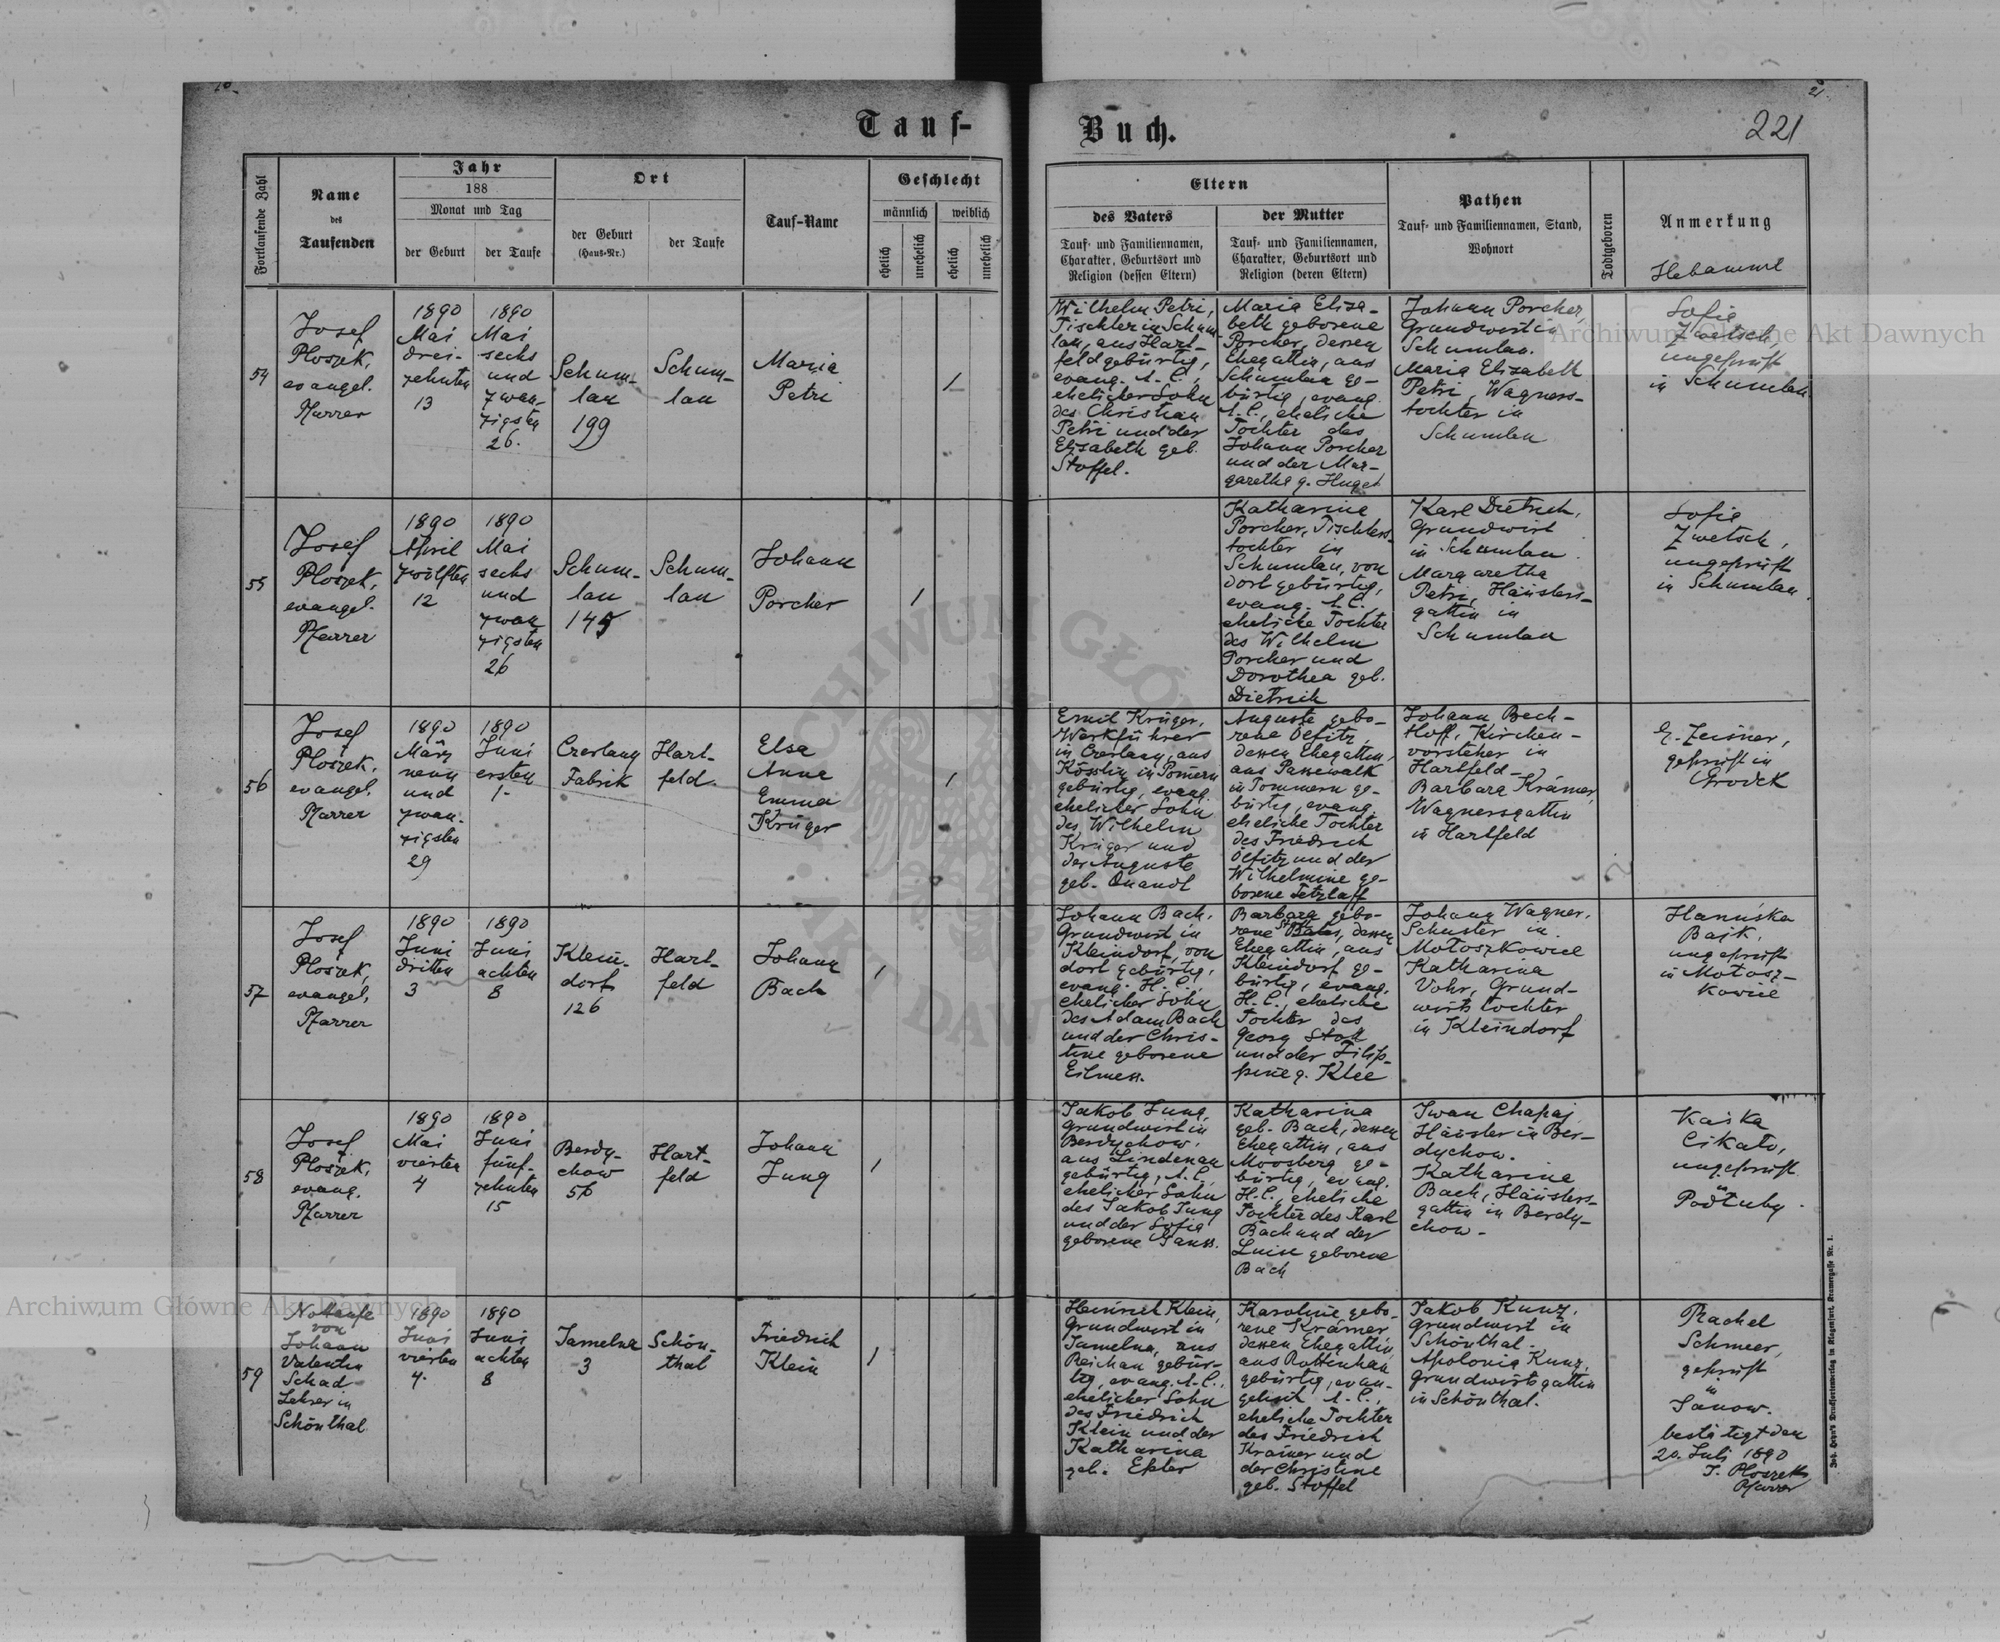 Tauf-
Buch.
221
Fortlaufende Zahl
Name
des
Taufenden
Jahr
188
Monat und Tag
der Geburt
der Taufe
Ort
der Geburt
(Haus-Nr.)
der Taufe
Tauf-Name
Geschlecht
männlich
weiblich
ehelich
unehelich
ehelich
unehelich
Eltern
des Vaters
Tauf- und Familiennamen,
Charakter, Geburtsort und
Religion (dessen Eltern)
der Mutter
Tauf- und Familiennamen,
Charakter, Geburtsort und
Religion (deren Eltern)
Pathen
Tauf- und Familiennamen, Stand,
Wohnort
Todtgeboren
Anmerkung
Hebamme
54
Josef
Ploszek,
evangel.
Pfarrer
1890
Mai
drei-
zehnten
13
1890
Mai
sechs
und
zwan-
zigsten
26.
Schum-
lau
199
Schum-
lau
Maria
Petri
1
Wilhelm Petri,
Tischler in Schum
lau, aus Hart-
feld gebürtig,
evang. A. C.,
ehelicher Sohn
des Christian
Petri und der
Elisabeth geb.
Stoffel.
Maria Elisa-
beth geborene
Porcher, dessen
Ehegattin, aus
Schumlau ge-
bürtig, evang.
A. C., eheliche
Tochter des
Johann Porcher
und der Mar-
garetha g. Huget
Johann Porcher,
Grundwirt in
Schumlau.
Maria Elisabeth
Petri, Wagners-
tochter in
Schumlau
Sofie
Zwetsch,
ungeprüft
in Schumlau.
55
Josef
Ploszek,
evangel.
Pfarrer
1890
April
zwölften
12
1890
Mai
sechs
und
zwan
zigsten
26
Schum-
lau
145
Schum-
lau
Johann
Porcher
1
Katharine
Porcher, Tischlers-
tochter in
Schumlau, von
dort gebürtig,
evang. A. C.
eheliche Tochter
des Wilhelm
Porcher und
Dorothea geb.
Dietrich
Karl Dietrich,
Grundwirt
in Schumlau.
Margaretha
Petri, Häuslers-
gattin in
Schumlau
Sofie
Zwetsch,
ungeprüft
in Schumlau.
56
Josef
Ploszek,
evangel.
Pfarrer
1890
März
neun
und
zwan-
zigsten
29
1890
Juni
ersten
1.
Czerlany
Fabrik
Hart-
feld
Elsa
Anna
Emma
Krüger
1
Emil Krüger,
Werkführer
in Czerlany, aus
Kösslin in Pomern
gebürtig, evang.
ehelicher Sohn
des Wilhelm
Krüger und
der Auguste
geb. Quandt
Auguste gebo-
rene Oefitz,
dessen Ehegattin,
aus Passewalk
in Pommern ge-
bürtig, evang.
eheliche Tochter
des Friedrich
Oefitz und der
Wilhelmine ge-
borene Tetzlaff
Johann Bech-
hoff, Kirchen-
vorsteher in
Hartfeld-
Barbara Krämer,
Wagnersgattin
in Hartfeld
Zeisner,
geprüft in
Grodek
57
Josef
Ploszek,
evangel.
Pfarrer
1890
Juni
dritten
3
1890
Juni
achten
8
Klein-
dorf
126
Hart-
feld
Johann
Bach
1
Johann Bach,
Grundwirt in
Kleindorf, von
dort gebürtig,
evang. H. C.,
ehelicher Sohn
des Adam Bach
und der Chris-
tine geborene
Eilmess.
Barbara gebo-
rene dessen
Ehegattin, aus
Kleindorf ge-
bürtig, evang.
H. C., eheliche
Tochter des
Georg
und der Filip-
pine g. Klee
Johann Wagner,
Schuster in
Motoszkowice
Katharina
Vohr, Grund-
wirts tochter
in Kleindorf
Hanuśka
Bajk,
ungeprüft
in Motosz-
kowice
58
Josef
Ploszek,
evang.
Pfarrer
1890
Mai
vierten
4
1890
Juni
fünf-
zehnten
15
Berdy-
chow
56
Hart-
feld
Johann
Jung
1
Jakob Jung,
Grundwirt in
Berdychow,
aus Lindenau
gebürtig, A. C.,
ehelicher Sohn
des Jakob Jung
und der Sofia
geborene Ganss.
Katharina
geb. Bach, dessen
Ehegattin, aus
Moosberg ge-
bürtig, evang.
H. C., eheliche
Tochter des Karl
Bach und der
Luise geborene
Bach
Iwan Chapaj
Häusler in Ber-
dychow.
Katharine
Bach, Häuslers-
gattin in Berdy-
chow.
Kaśka
Cikało,
ungeprüft
in
Podłuby.
59
Nottaufe
von
Johann
Valentin
Schad
Lehrer in
Schönthal
1890
Juni
vierten
4.
1890
Juni
achten
8
Jamelna
3
Schön-
thal
Friedrich
Klein
1
Heinrich Klein,
Grundwirt in
Jamelna, aus
Reichau gebür-
tig, evang. A. C.,
ehelicher Sohn
des Friedrich
Klein und der
Katharina
geb. Epler
Karoline gebo-
rene Krämer
dessen Ehegattin,
aus Rottenhan
gebürtig, evan-
gelisch A. C.,
eheliche Tochter
des Friedrich
Krämer und
der Christine
geb. Stoffel
Jakob Kunz,
Grundwirt in
Schönthal.
Apolonia Kunz,
Grundwirtsgattin
in Schönthal.
Rachel
Schmeer,
geprüft
in
Janow.
bestätigt den
20. Juli 1890
J. Ploszek
Pfarrer
Archiwum Główne Akt Dawnych
Archiwum Główne Akt Dawnych
ARCHIWUM GŁÓWNE AKT DAWNYCH